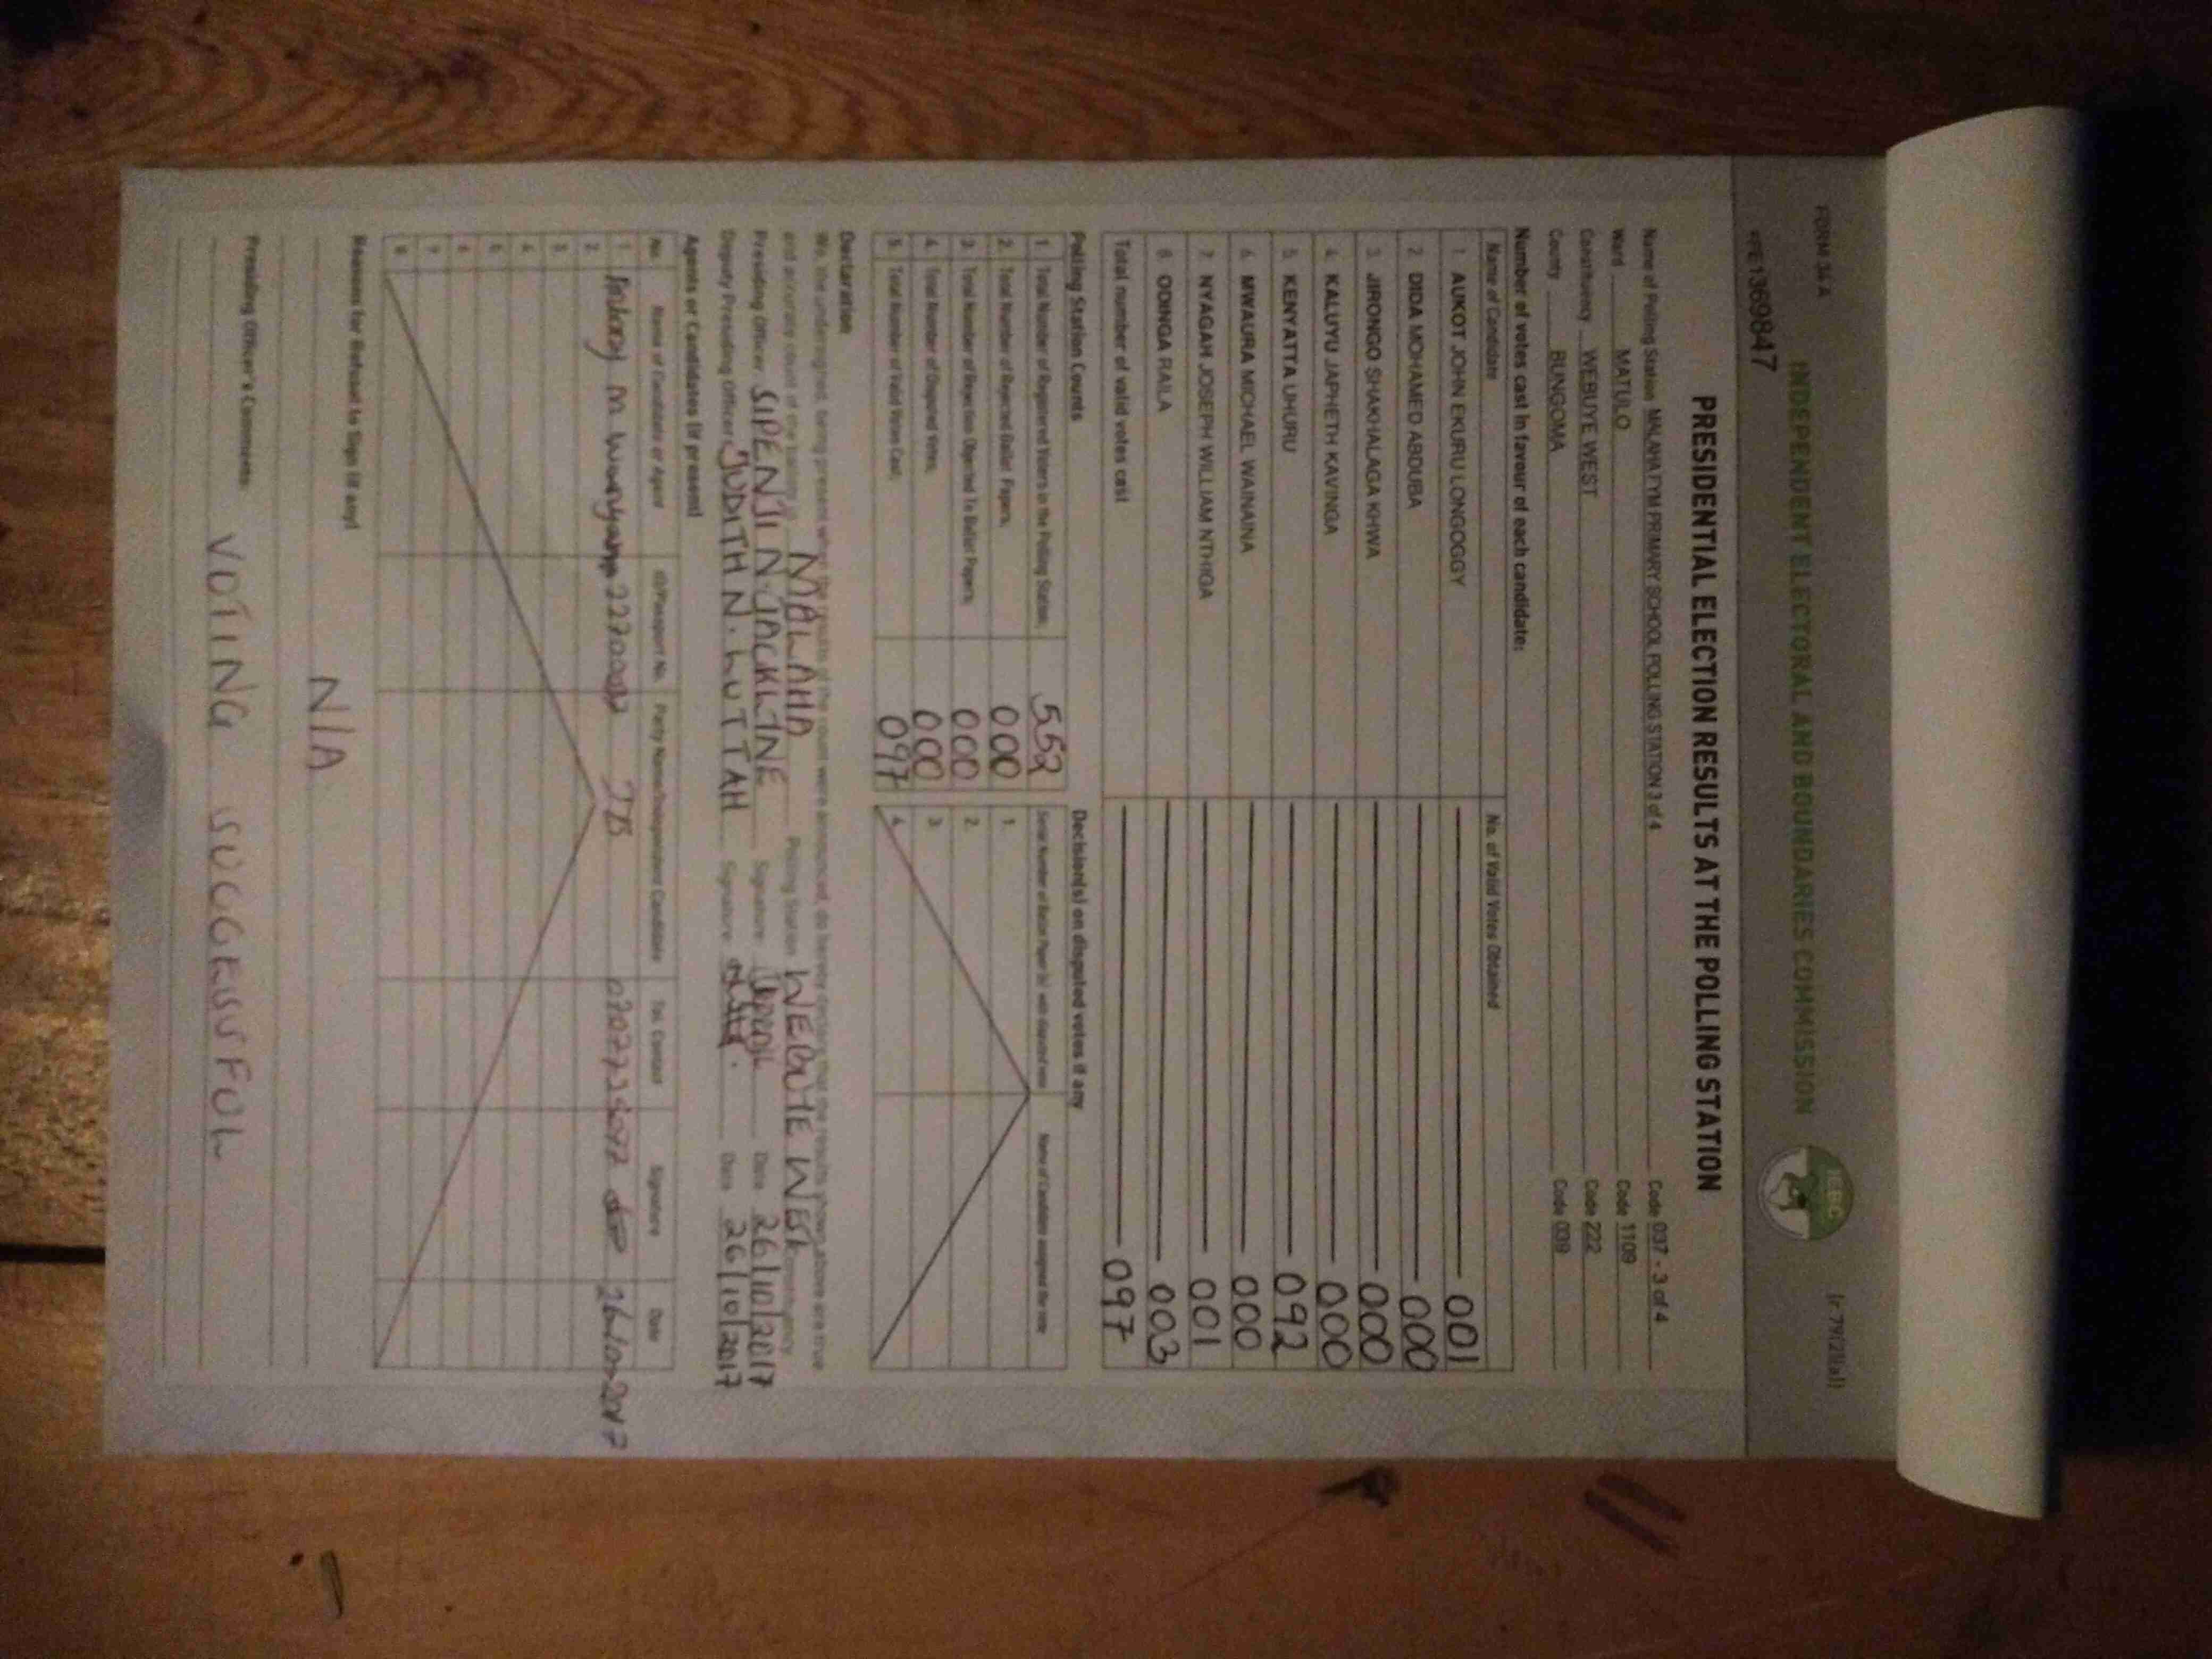 FORM 34 A
(r.79(2)(a))
INDEPENDENT ELECTORAL AND BOUNDARIES COMMISSION
IEBC
1369847
PRESIDENTIAL ELECTION RESULTS AT THE POLLING STATION
Name of Polling Station MALAHA FYM PRIMARY SCHOOL POLLING STATION 3 of 4 Code 037 - 3 of 4
Ward MATULO Code 1109
Constituency WEBUYE WEST Code 222
County BUNGOMA Code 039
Number of votes cast in favour of each candidate:
Name of Candidate No. of Valid Votes Obtained
1. AUKOT JOHN EKURU LONGOGGY 001
2. DIDA MOHAMED ABDUBA 000
3. JIRONGO SHAKHALAGA KHWA 000
4. KALUYU JAPHETH KAVINGA 000
5. KENYATTA UHURU 092
6. MWAURA MICHAEL WAINAINA 000
7. NYAGAH JOSEPH WILLIAM NTHIGA 001
8. ODINGA RAILA 003
Total number of valid votes cast 097
Polling Station Counts
1. Total Number of Registered Voters in the Polling Station; 552
2. Total Number of Rejected Ballot Papers; 000
3. Total Number of Rejection Objected To Ballot Papers; 000
4. Total Number of Disputed Votes; 000
5. Total Number of Valid Votes Cast; 097
Decision(s) on disputed votes if any
Serial Number of Ballot Paper (s) with disputed vote Name of Candidate assigned the vote
1.
2.
3.
4.
Declaration
We, the undersigned, being present when the results of the count were announced, do hereby declare that the results shown above are true
and accurate count of the ballots in MALAHA Polling Station WEBUYE WEST Constituency
Presiding Officer SIPENJI N. JACKLINE Signature Date 26/10/2017
Deputy Presiding Officer JUDITH N. LUTTAH Signature Date 26/10/2017
Agents or Candidates (if present)
No. Name of Candidate or Agent ID/Passport No. Party Name/Independent Candidate Tel. Contact Signature Date
1.
2.
3
4
5
6
7
8
Reasons for Refusal to Sign (if any)
N/A
Presiding Officer's Comments:
VOTING SUCCESSFUL